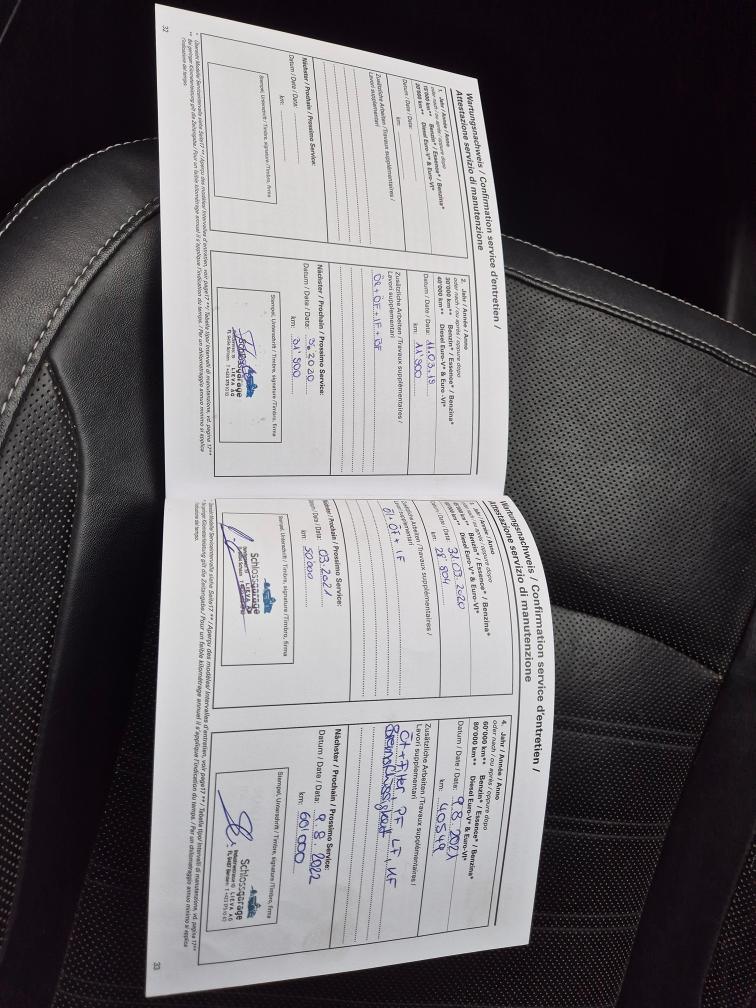 Wartungsnachweis / Confirmation service d'entretien /
Attestazione servizio di manutenzione
1. Jahr / Année / Anno
oder nach / ou après / oppure dopo
15'000 km** Benzin* / Essence* / Benzina*
20'000 km** Diesel Euro-V* & Euro-VI*
Datum / Date / Data:
km:
Zusätzliche Arbeiten / Travaux supplémentaires /
Lavori supplementari
Nächster / Prochain / Prossimo Service:
Datum / Date / Data:
km:
Stempel, Unterschrift / Timbre, signature / Timbro, firma
2. Jahr / Année / Anno
oder nach / ou après / oppure dopo
30'000 km** Benzin* / Essence* / Benzina*
40'000 km** Diesel Euro-V* & Euro-VI*
Datum / Date / Data: 11.03.19
km: 11'900
Zusätzliche Arbeiten / Travaux supplémentaires /
Lavori supplementari
Öl + ÖF + IF + BF
Nächster / Prochain / Prossimo Service:
Datum / Date / Data: 3.2020
km: 31'900
Stempel, Unterschrift / Timbre, signature / Timbro, firma
Schlossgarage
LIEVA AG
32
Wartungsnachweis / Confirmation service d'entretien /
Attestazione servizio di manutenzione
3. Jahr / Année / Anno
oder nach / ou après / oppure dopo
Benzin* / Essence* / Benzina*
Diesel Euro-V* & Euro-VI*
Datum / Date / Data: 31.03.2020
km: 28'804
Zusätzliche Arbeiten / Travaux supplémentaires /
Lavori supplementari
Öl + ÖF + IF
Nächster / Prochain / Prossimo Service:
Datum / Date / Data: 03.2021
km: 50'000
Stempel, Unterschrift / Timbre, signature / Timbro, firma
Schlossgarage
LIEVA AG
4. Jahr / Année / Anno
oder nach / ou après / oppure dopo
60'000 km** Benzin* / Essence* / Benzina*
80'000 km** Diesel Euro-V* & Euro-VI*
Datum / Date / Data: 9.8.2021
km: 40549
Zusätzliche Arbeiten / Travaux supplémentaires /
Lavori supplementari
Öl + Filter PF LF, KF
Bremsflüssigkeit
Nächster / Prochain / Prossimo Service:
Datum / Date / Data: 9.8.2022
km: 60'000
Stempel, Unterschrift / Timbre, signature / Timbro, firma
Schlossgarage
LIEVA AG
33